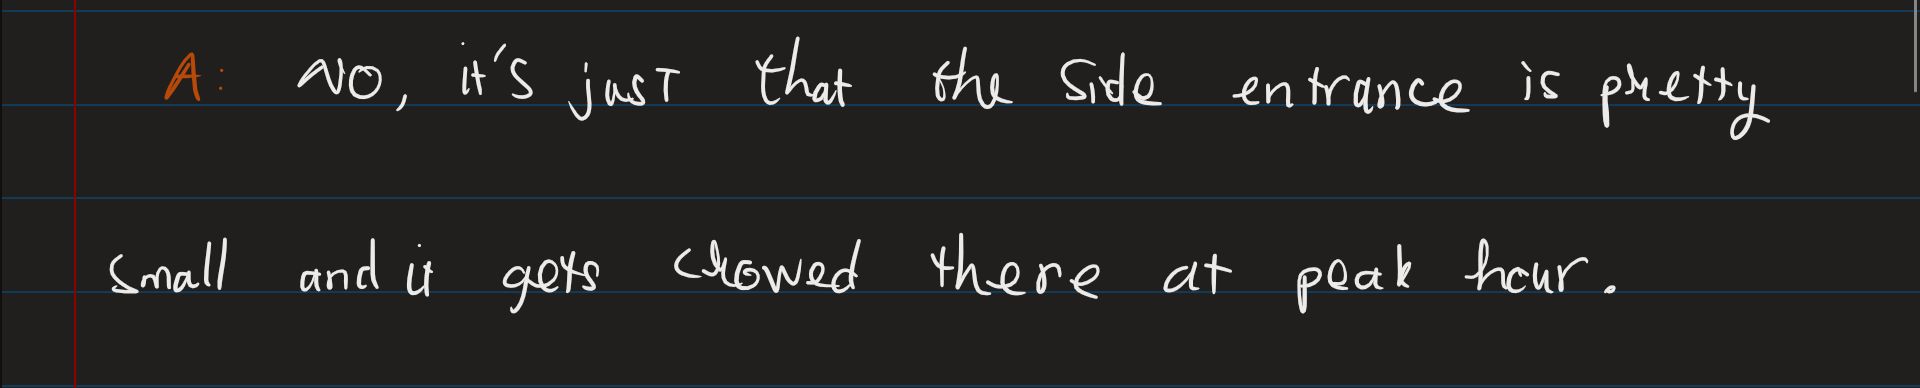 A: No, it's just that the side entrance is pretty
small and it gets crowed there at peak hour.